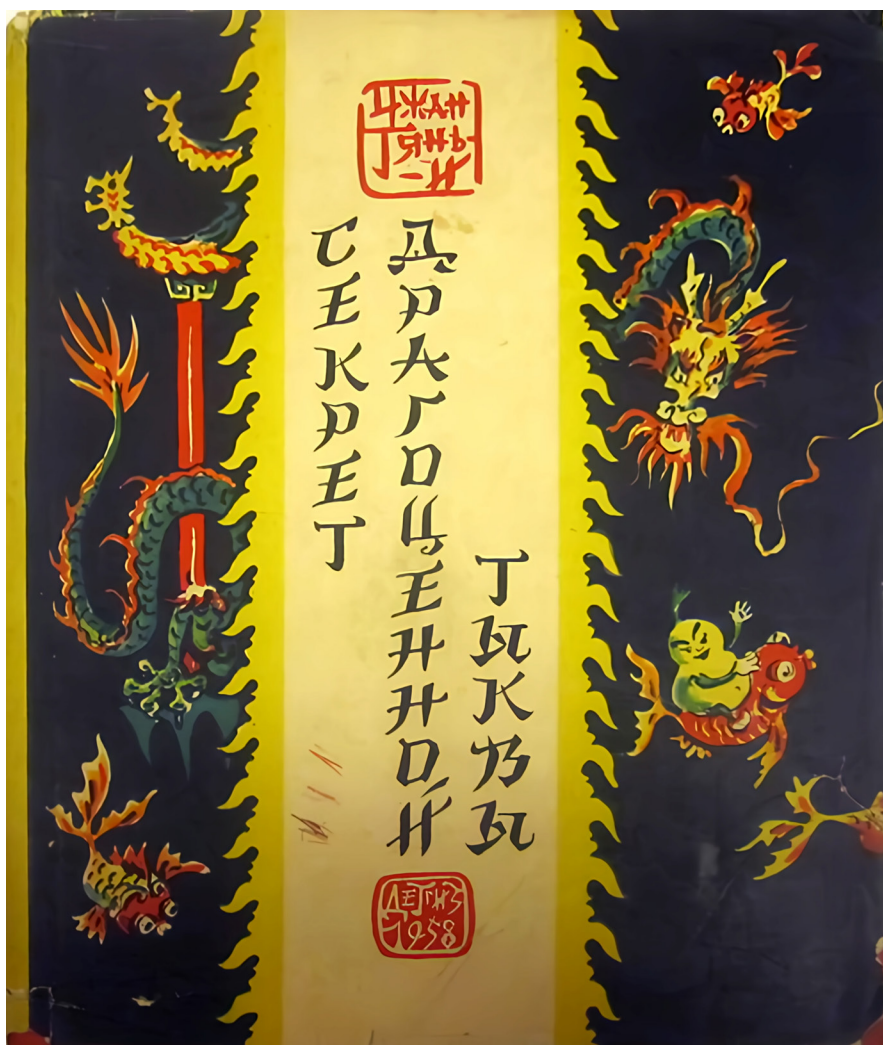 ЧЖАН
ТЯНЬ
-И
СЕКРЕТ
ДРАГОЦЕННОЙ
ТЫКВЫ
ДЕТГИЗ
1958